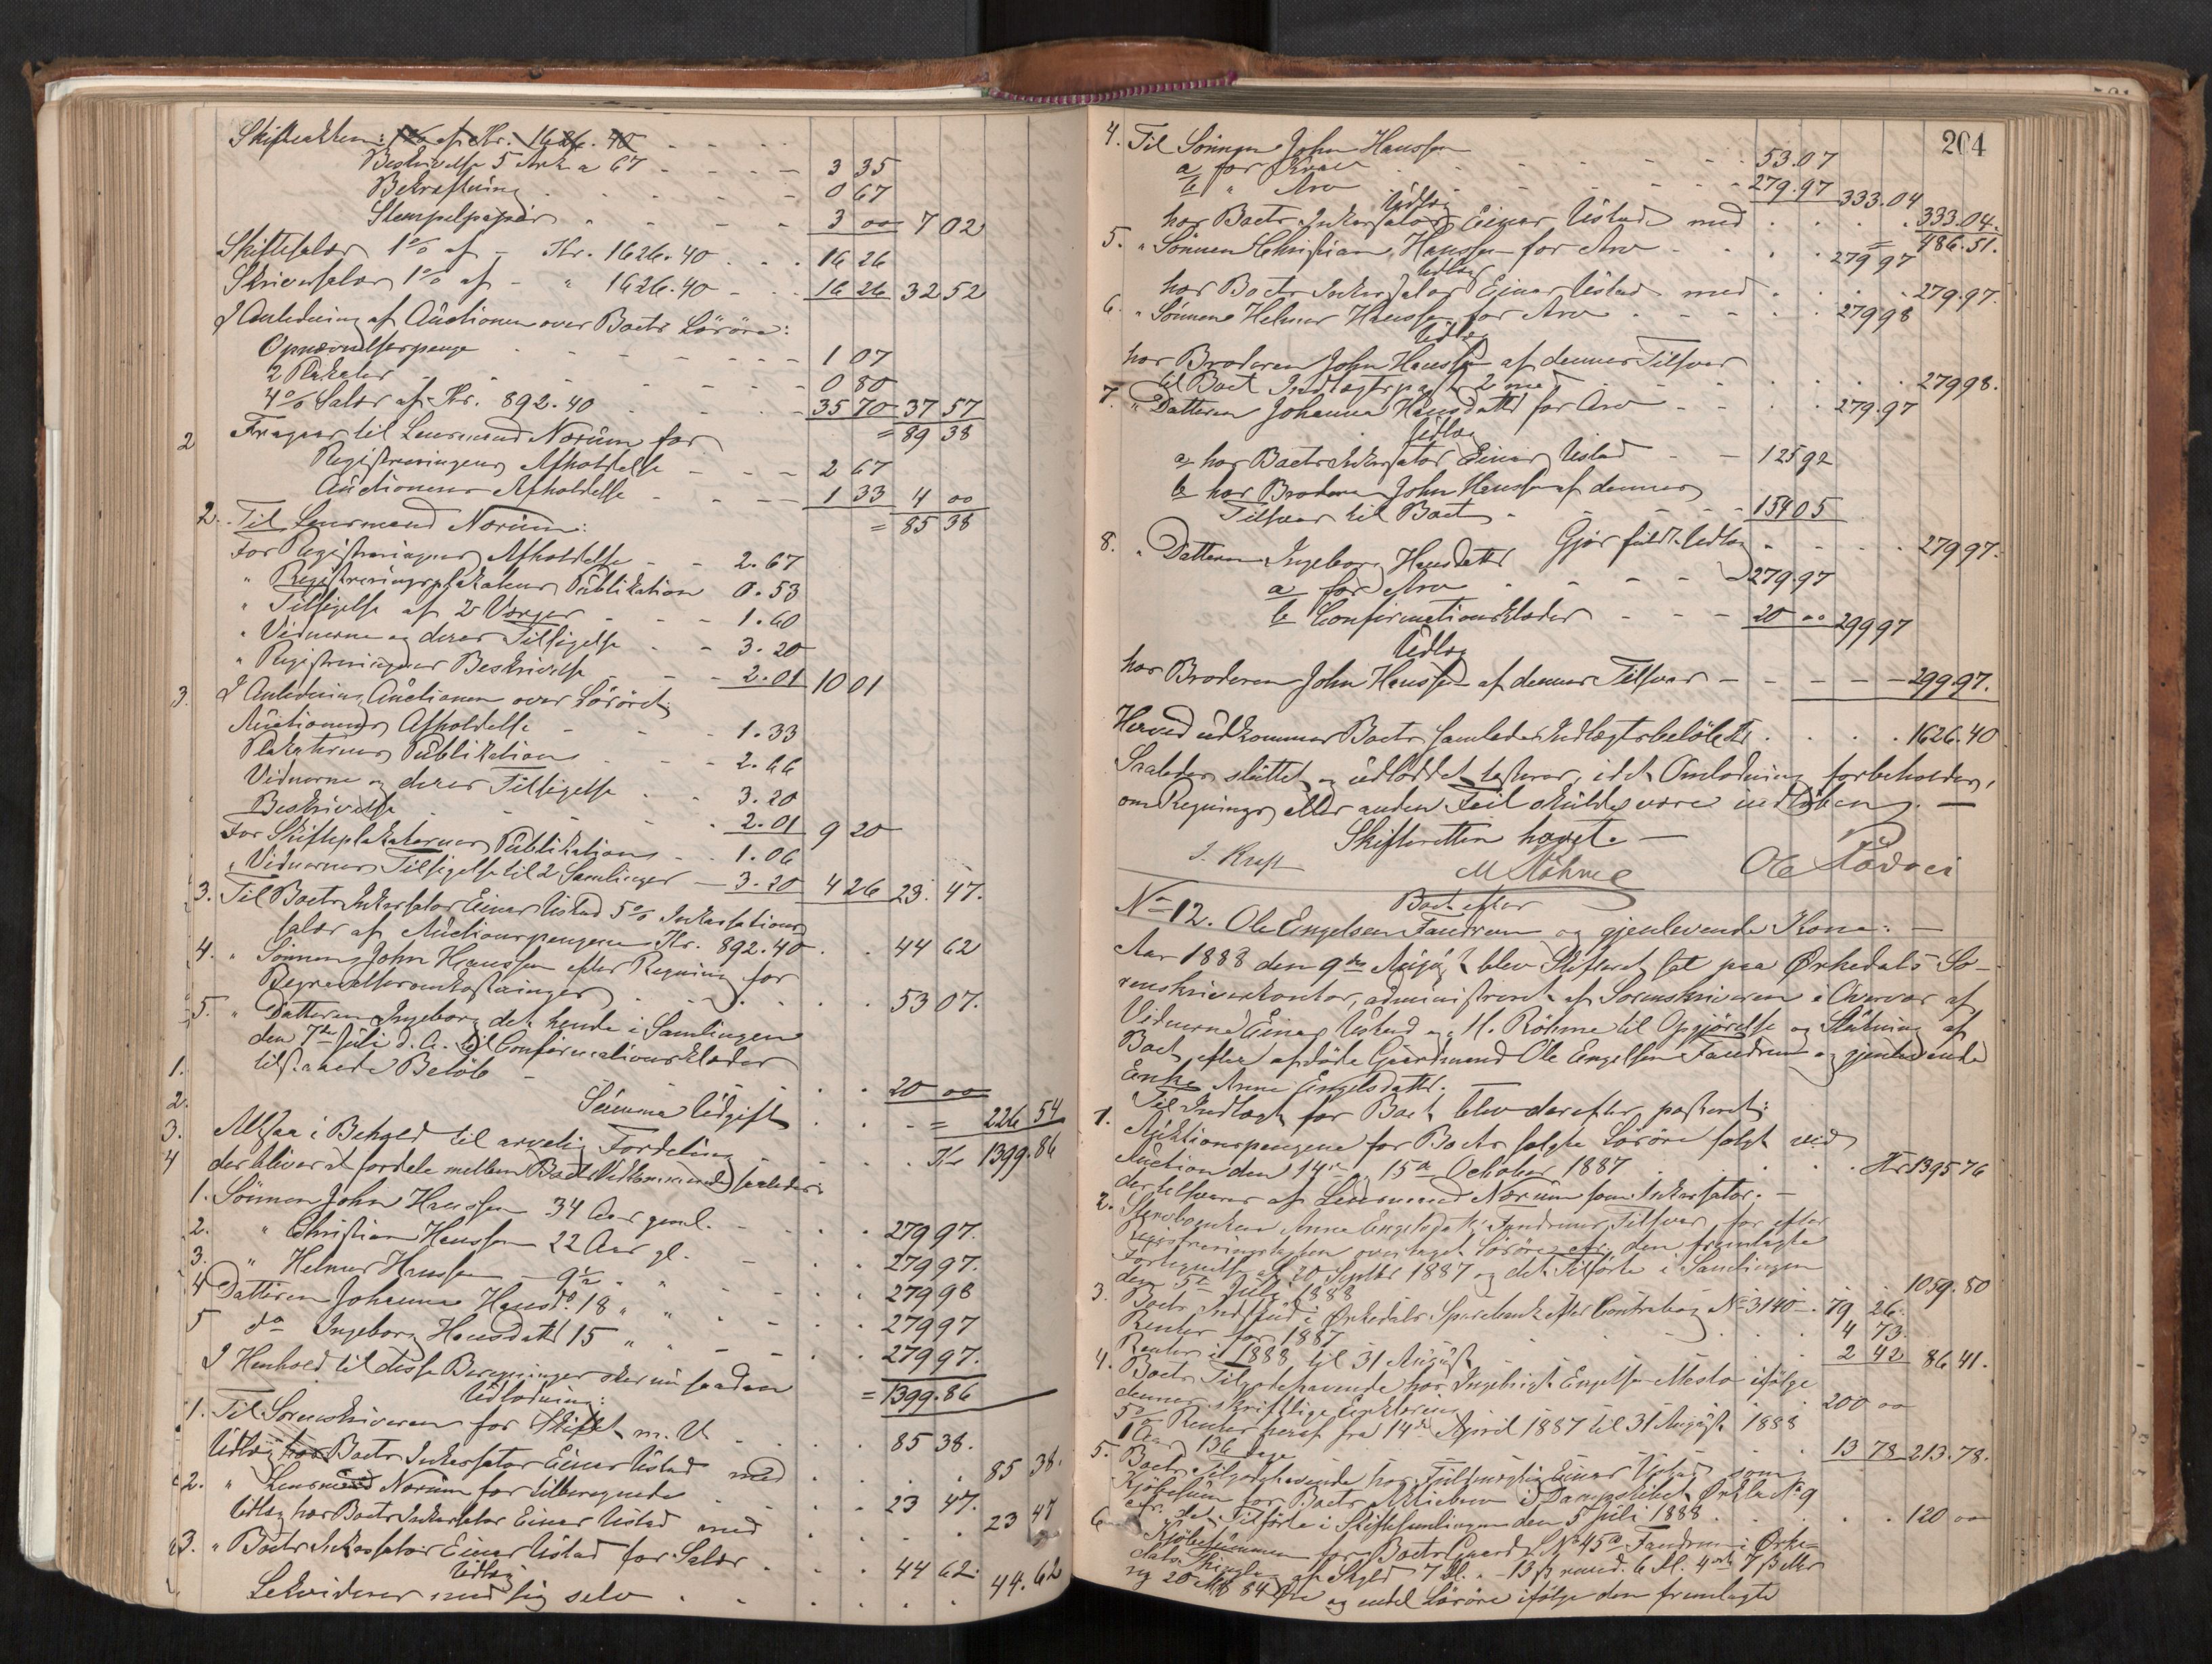 Skifteakten: 1% af Kr. 1626.40
Beskrivelse 5 Ark a 67 3 35
Bekræftning 0 67
Stempelpapir 3 00 7 02
Skiftesalær 1% af - Kr. 1626.40 16 26
Skriversalær 1% af - " 1626.40 16 26 32 52
I Anledning af Auctionen over Boets Løsøre:
Opnævnelsespenge 1 07
2 Plakater 0 80
4% Salær af Kr. 892.40 35 70 37 57
= 89 38
2 Fragaar til Lensmand Norum for
Registreringens Afholdelse 2 67
Auctionens Afholdelse 1 33 4 00
= 85 38
2. Til Lensmand Norum:
For Registreringens Afholdelse 2.67
" Registreringsplakatens Publikation 0.53
" Tilsigelse af 2 Værger 1.60
" Vidnerne og deres Tilsigelse 3.20
" Registreringens Beskrivelse 2.01 10 01
3. I Anledning Auctionen over Løsøret:
Auctionens Afholdelse 1.33
Plakaternes Publikation 2.66
Vidnerne og deres Tilsigelse 3.20
Beskrivelse 2.01 9 20
For Skifteplakaternes Publikation 1.06
" Vidnernes Tilsigelse til 2 Samlinger 3.20 4 26 23.47.
3. Til Boets Inkassator Einar Ustad 5% Inkassations
salær af Auctionspengene Kr. 892.40 44 62
4. " Sönnen John Hanssen efter Regning for
Begravelsesomkostninger 53 07.
5. " Datteren Ingeborg det hende i Samlingen
den 7de Juli d. A. til Confirmationsklæder
1. tilstaaede Beløb 20 00
2. Summa Udgift = 226 54
3. Altsaa i Behold til arvelig Fordeling Kr 1399.86
4 der bliver at fordele mellem Boets Vedkommende saaledes:
1. Sönnen John Hanssen 34 Aar gaml. 279 97.
2. " Christian Hanssen 22 Aar gl. 279 97.
3. " Helmer Hanssen - 9½ " " 279 98
4 Datteren Johanna Hansd. 18 " " 279 97
5 do Ingeborg Hansdatter 15 " " 279 97.
= 1399.86
I Henhold til disse Beregninger sker nu saadan
Udlodning:
1. Til Sorenskriveren for Skiftet m. V. 85 38.
Udlæg hos Boets Inkassator Einar Ustad med 85 38.
2. " Lensmand Norum for tilberegnede 23 47.
Udlæg hos Boets Inkassator Einar Ustad med 23 47
3. " Boets Inkassator Einar Ustad for Salær 44 62.
Udlæg
Lekviderer med sig selv 44.62
204
4. Til Sönnen John Hanssen
a for Krav 53.07
b " Arv 279.97 333.04
Udlæg
hos Boets Inkassator Einar Ustad med 333.04.
= 486.51.
5. " Sönnen Christian Hanssen for Arv 279 97
Udlæg
hos Boets Inkassator Einar Ustad med 279.97.
6. " Sönnen Helmer Hanssen for Arv 279 98
Udlæg
hos Broderen John Hanssen af dennes Tilsvar
til Boet Indtægtspost 2 med 279 98.
7. " Datteren Johanna Hansdatter for Arv 279.97
Udlæg
a hos Boets Inkassator Einar Ustad 125 92
b hos Broderen John Hanssen af dennes
Tilsvar til Boet 154 05
Gjør fuldt Udlæg 279 97.
8. " Datteren Ingeborg Hansdatter
a for Arv 279.97
b Confirmationsklæder 20 00 299 97
Udlæg
hos Broderen John Hanssen af dennes Tilsvar 299 97.
Herved udkommer Boets samlede Indtægtsbeløb Kr. 1626.40
Saaledes sluttet og udloddet testeres, idet Omlodning forbeholdes,
om Regnings eller anden Feil skulde være indløben. —
Skifteretten hævet. —
M Röhme Ole
Boet efter
No 12. Ole Engelsen Fandrem og gjenlevende Kone: —
Aar 1888 den 9de August blev Skifteret sat paa Ørkedals So-
renskriverkontor, administreret af Sorenskriveren i Overvær af
Vidnerne Einar Ustad og M. Röhme til Opgjørelse og Slutning af
Boet efter afdøde Gaardmand Ole Engelsen Fandrem og gjenlevende
Enke Anne Engelsdatter.
Til Indtægt for Boet blev derefter posteret:
1. Auktionspengene for Boets solgte Løsøre solgt ved
Auction den 14de og 15de October 1887 Kr 1395 76
der tilsvares af Lensmand Norum som Inkassator. —
2. Stervboenken Anne Engelsdatter Fandrems Tilsvar for efter
Registreringstaxten overtaget Løsøre cfr. den fremlagte
Fortegnelse af 20 Septbr 1887 og det Tilførte i Samlingen
den 5te Juli 1888 1059.80
3. Boets Indskud i Ørkedals Sparebank efter Contrabog No 3140 79 26.
Renter for 1887 4 73.
Renter i 1888 til 31 August 2 42 86 41.
4. Boets Tilgodehavende hos Ingebrigt Engelsen Mosto ifølge
dennes skriftlige Erklæring 200 00
5% Renter heraf fra 14de April 1887 til 31 August 1888
1 Aar 136 Dage 13 78 213.78.
5. Boets Tilgodehavende hos Fuldmægtig Einar Ustad som
Kjøbesum for Boets Aktiebrev i Dampskibet Ørkla No 9
cfr. det Tilførte i Skiftesamlingen den 5 Juli 1888 120 00
6. Kjøbesummen for Boets Gaard L.No 45a Fandrem i Ørke-
dals Thinglag af Skyld 7 Dl. - 13 ß, revid. 6 Dl. 4 ort 7 ß eller
ny 20 Mk 84 Øre og endel Løsøre ifølge den fremlagte